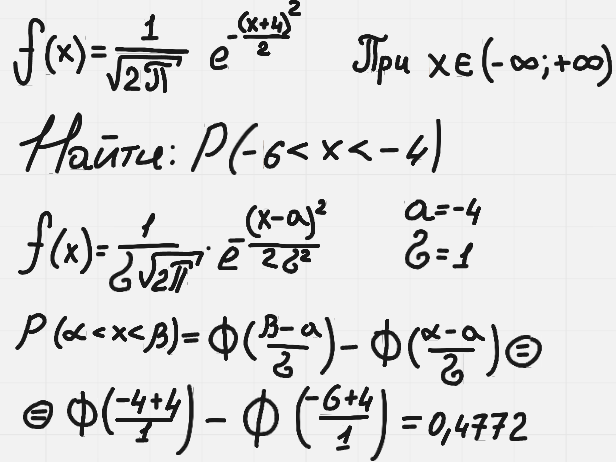 f(x) = 1/√2π e^(-(x+4)²/2) При x ∈ (-∞; +∞)
Найти: P(-6 < x < -4)
f(x) = 1/(σ√2π) · e^(-(x-a)²/(2σ²)) a = -4
σ = 1
P(α < x < β) = Φ((β-a)/σ) - Φ((α-a)/σ) ⊜
⊜ Φ((-4+4)/1) - Φ((-6+4)/1) = 0,4772